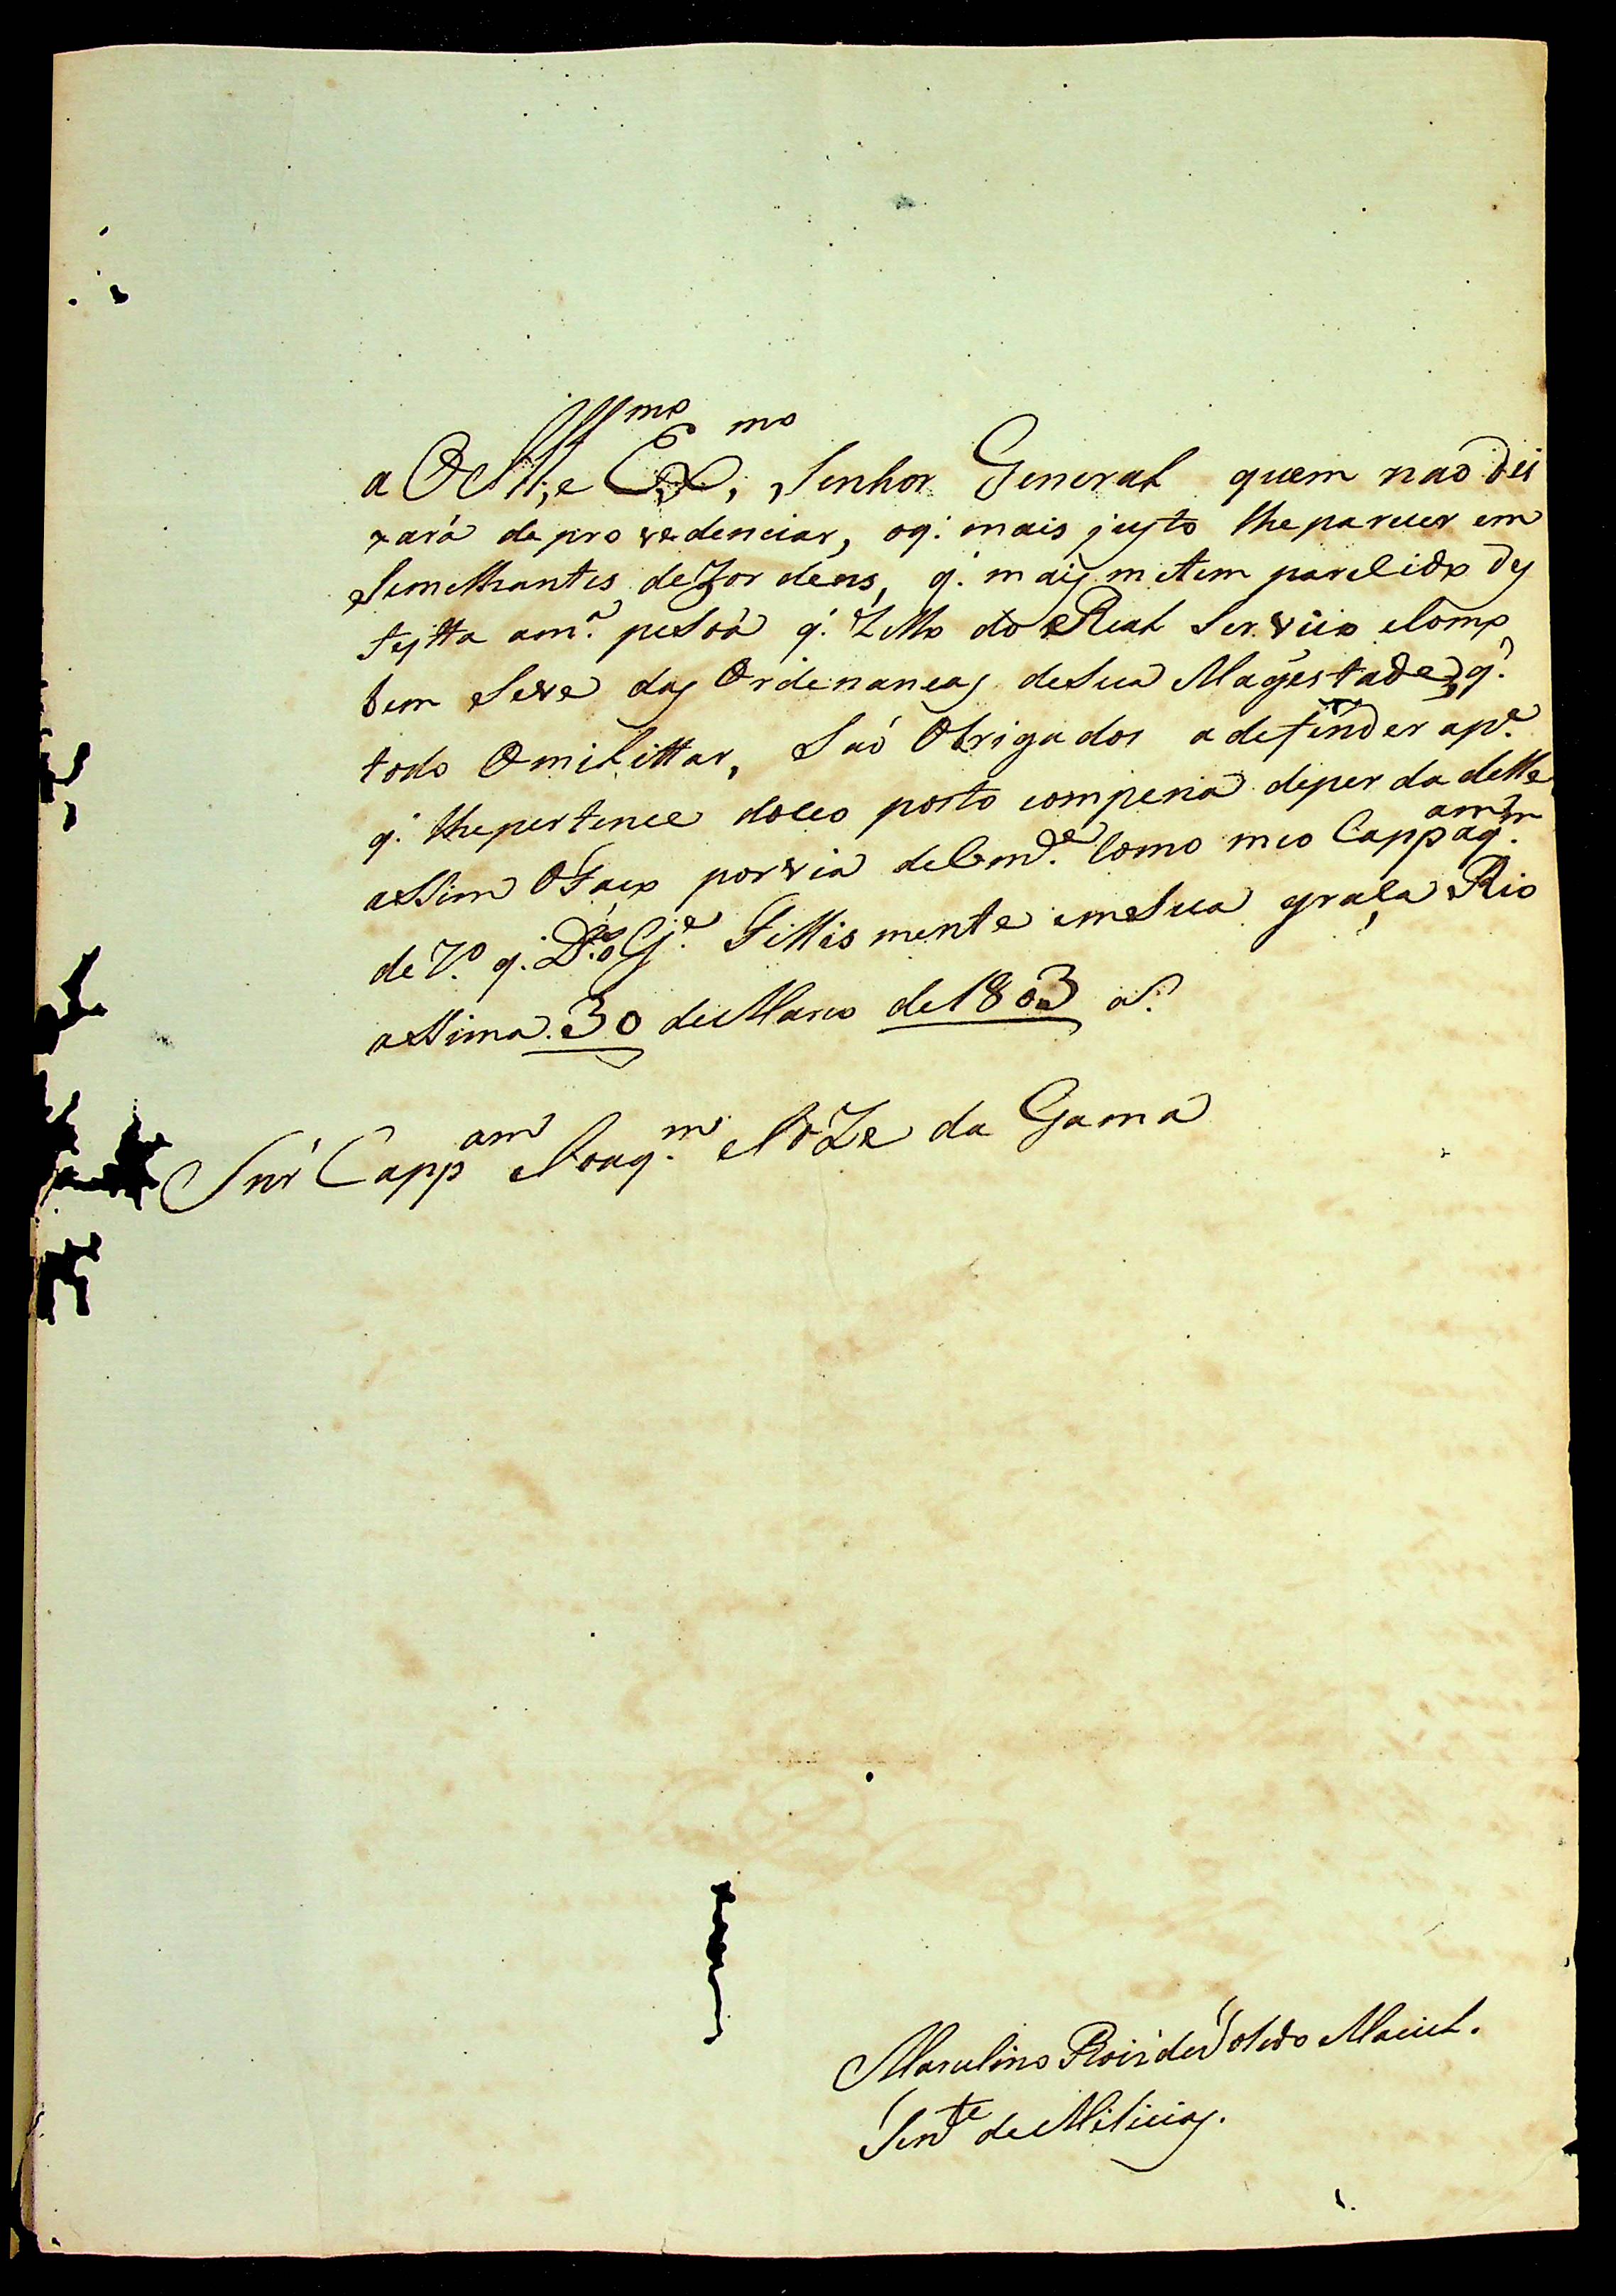 a O Ill.mo, e Ex.mo, Senhor General quem naó dei
xará de pro vedenciar, oq.' mais justo lhe parecer em
Semelhantes deZor dens, q.' mais me tem parecido des
teytta am.ª peSoá q.' Zello do Real Serviço e Comp
tem Se ve das Ordenancas de Sua Magestade, q.'
todo O milittar, Saó Obrigados a defender ap.e
q.' lhe pertence do Seo posto com pena de per da delle
aSsim O Faço por via de Vm.ce Como meo Capp.am aq.m
de z.o q.' D.s G.e Fellis mente em Sua graça Rio
aSsima. 30 de Marco de 1803 a.
Snr' Capp.am Joaq.m JoZe da Gama
Marcelino Roiz' de Toledo Maciel.
Ten.te de Milicias.